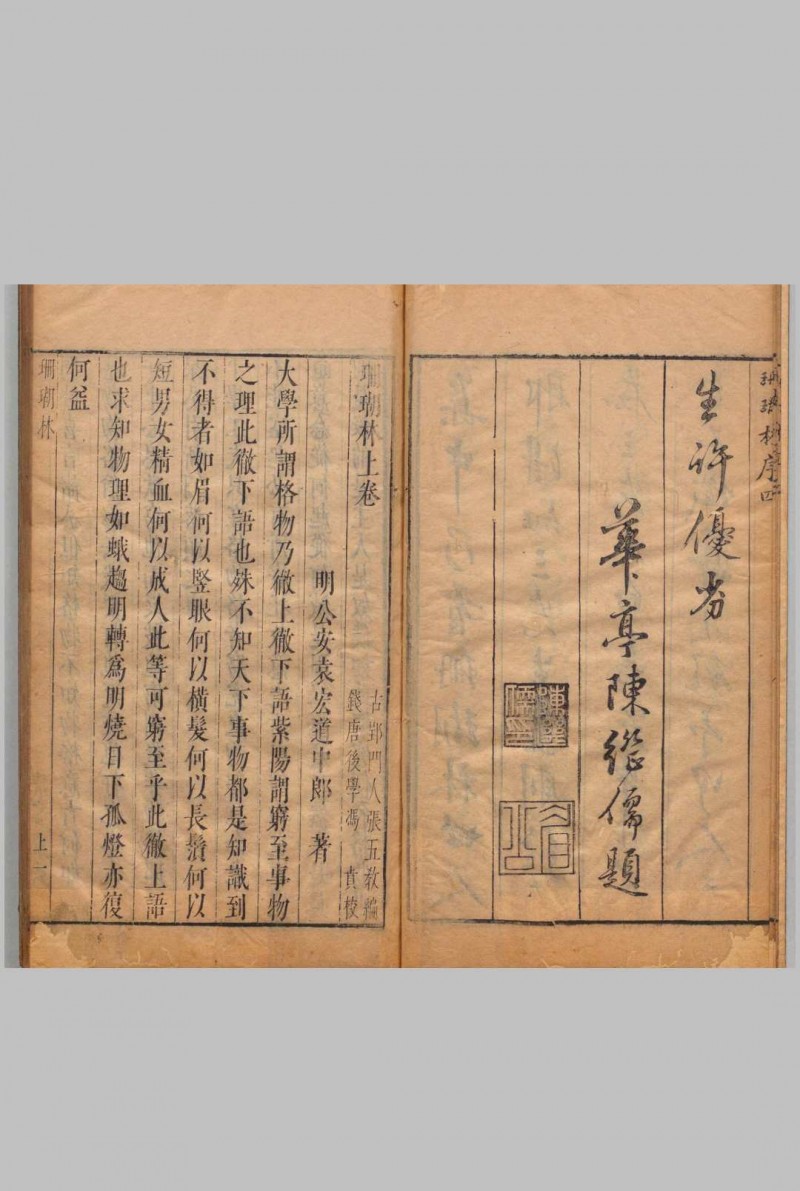 珊瑚林序四
生許優劣
華亭陳繼儒題
陳繼儒印
眉公
珊瑚林上卷
古鄞門人張五教編
錢唐後學馮賁校
明公安袁宏道中郎著
大學所謂格物乃徹上徹下語紫陽謂窮至事物
之理此徹下語也殊不知天下事物都是知識到
不得者如眉何以豎眼何以橫髮何以長鬚何以
短男女精血何以成人此等可窮至乎此徹上語
也求知物理如蛾趨明轉為明燒日下孤燈亦復
何益
珊瑚林
上一